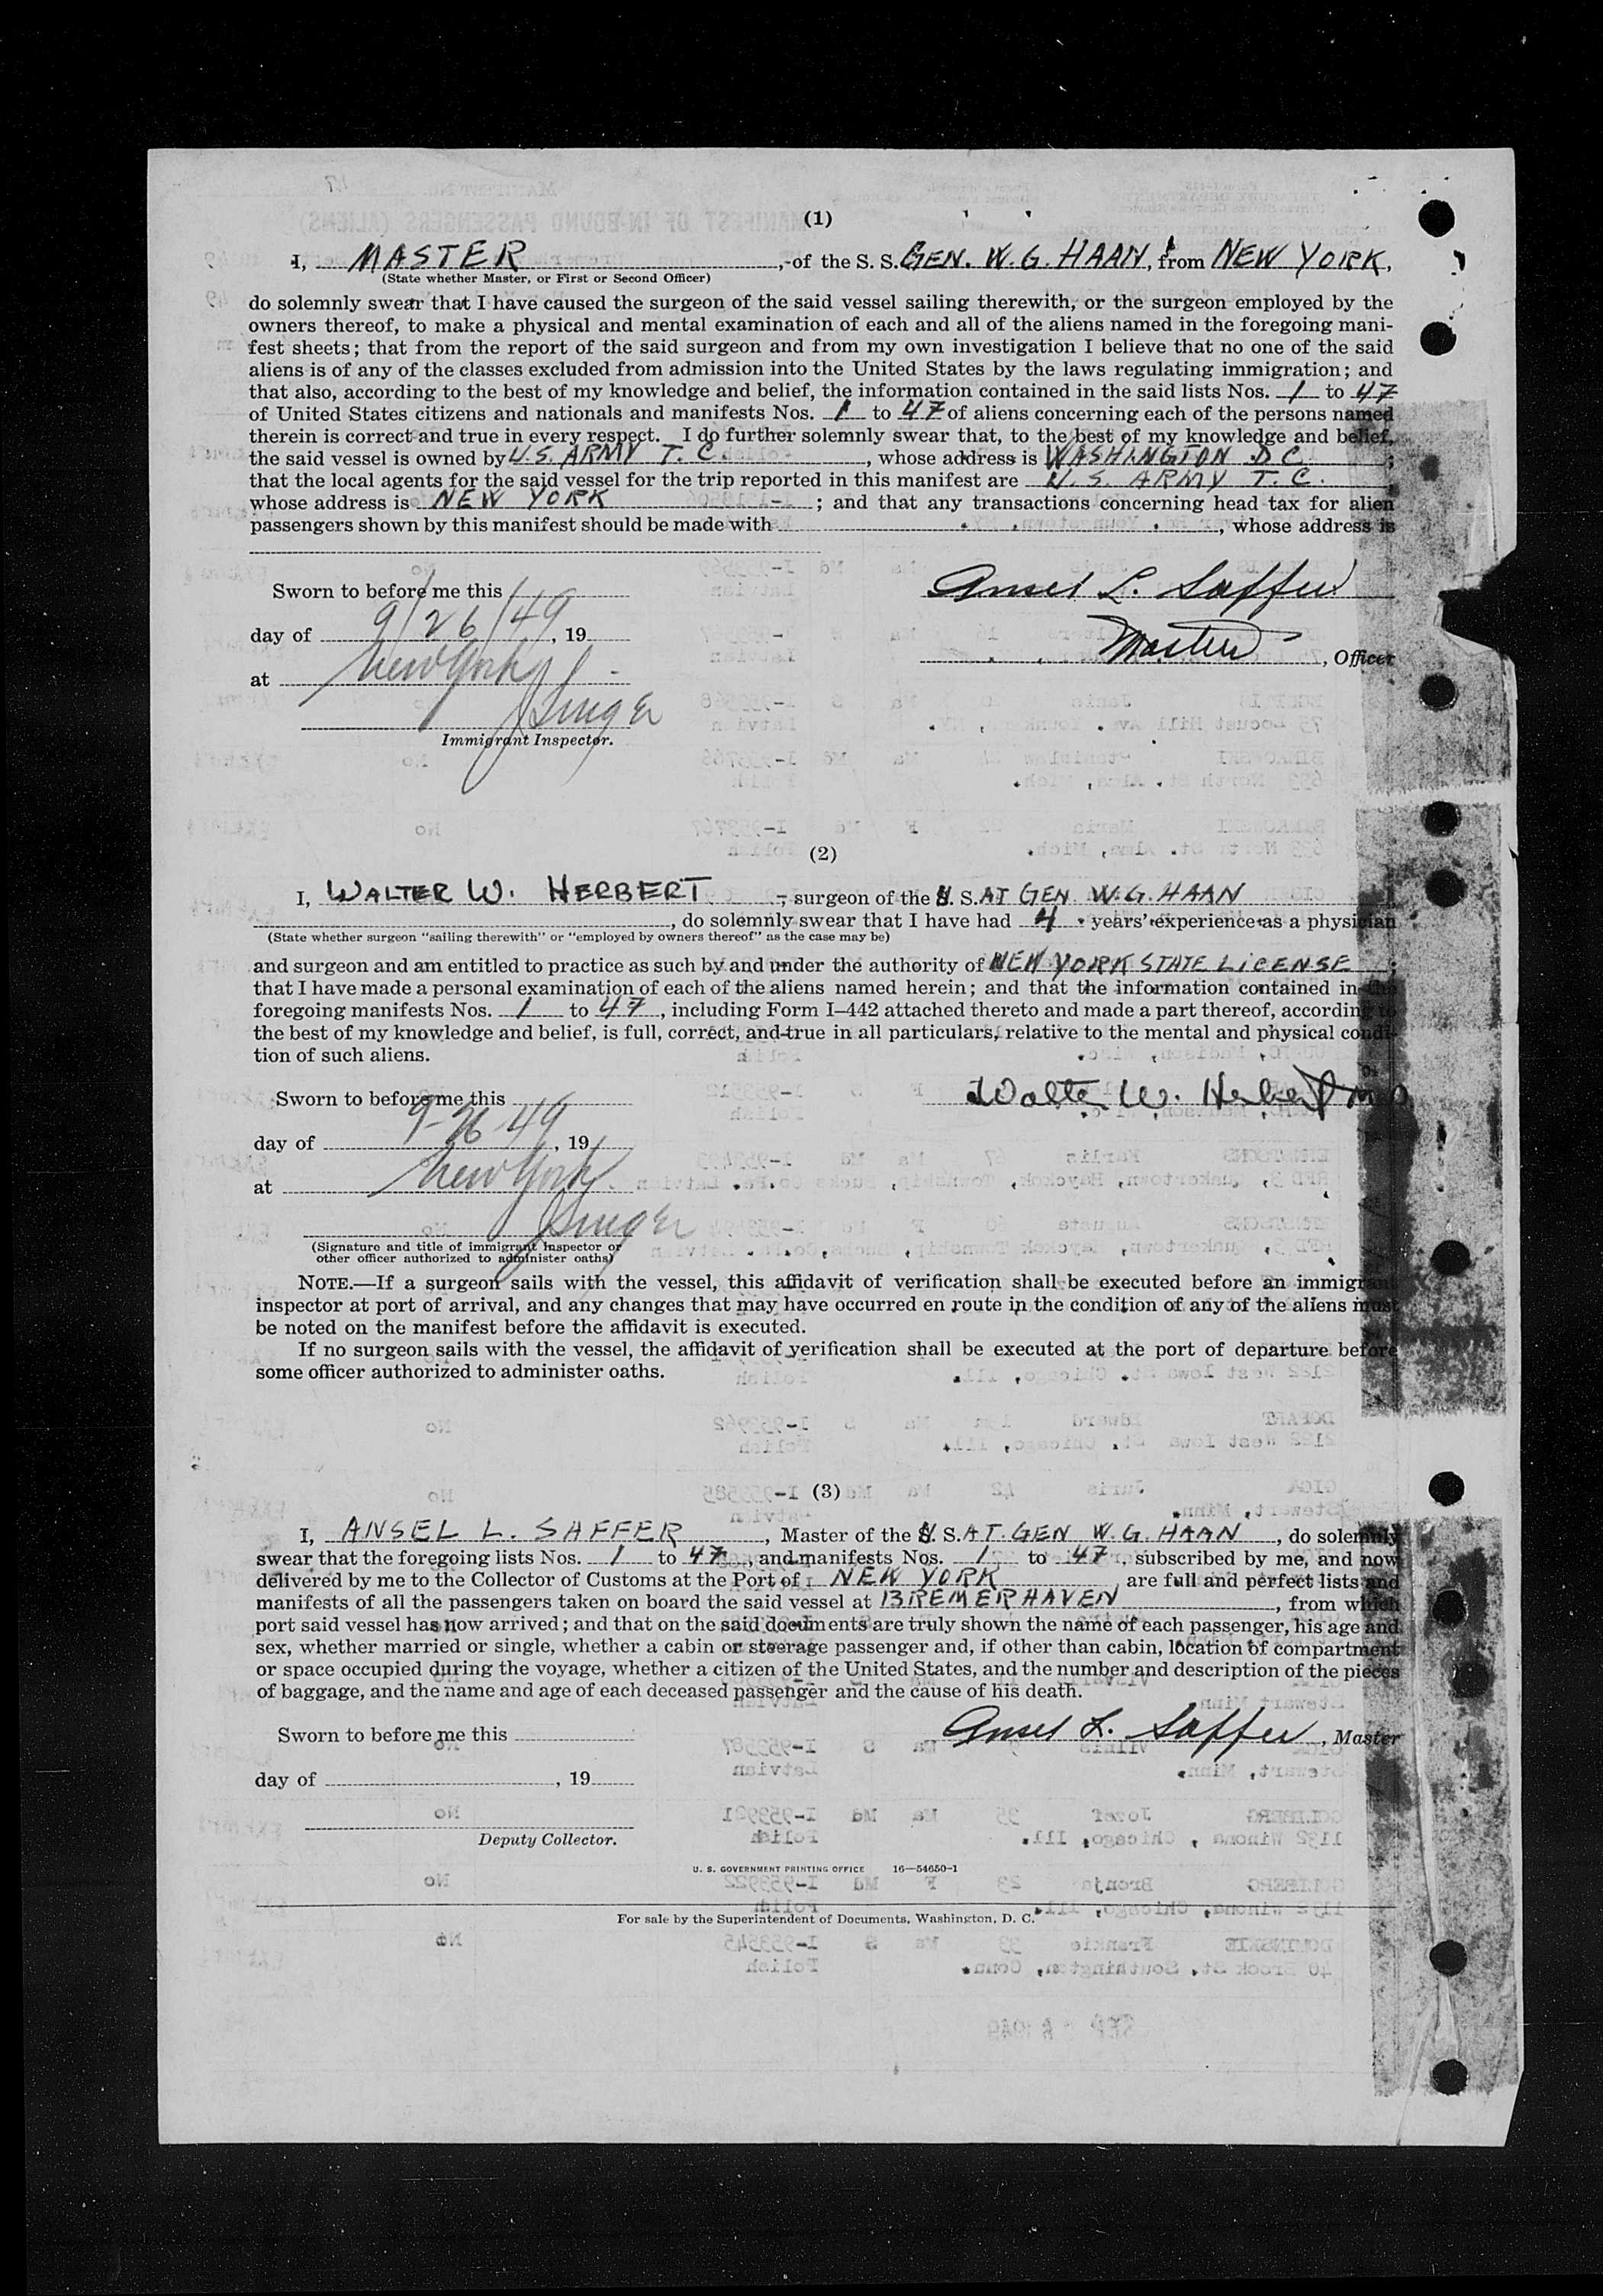 (1)
I, MASTER, of the S. S. GEN. W. G. HAAN, from NEW YORK,
(State whether Master, or First or Second Officer)
do solemnly swear that I have caused the surgeon of the said vessel sailing therewith, or the surgeon employed by the
owners thereof, to make a physical and mental examination of each and all of the aliens named in the foregoing mani-
fest sheets; that from the report of the said surgeon and from my own investigation I believe that no one of the said
aliens is of any of the classes excluded from admission into the United States by the laws regulating immigration; and
that also, according to the best of my knowledge and belief, the information contained in the said lists Nos. 1 to 47
of United States citizens and nationals and manifests Nos. 1 to 47 of aliens concerning each of the persons named
therein is correct and true in every respect. I do further solemnly swear that, to the best of my knowledge and belief,
the said vessel is owned by U.S. ARMY T. C., whose address is WASHINGTON D C;
that the local agents for the said vessel for the trip reported in this manifest are U. S. ARMY T. C.
whose address is NEW YORK; and that any transactions concerning head tax for alien
passengers shown by this manifest should be made with , whose address is
Sworn to before me this
Ansel L. Saffer
day of 9/26/49, 19
Master, Officer
at New York
J Singer
Immigrant Inspector.
(2)
I, WALTER W. HERBERT, surgeon of the U. S. AT GEN W. G. HAAN
, do solemnly swear that I have had 4 years' experience as a physician
(State whether surgeon "sailing therewith" or "employed by owners thereof" as the case may be)
and surgeon and am entitled to practice as such by and under the authority of NEW YORK STATE LICENSE;
that I have made a personal examination of each of the aliens named herein; and that the information contained in the
foregoing manifests Nos. 1 to 47, including Form I–442 attached thereto and made a part thereof, according to
the best of my knowledge and belief, is full, correct, and true in all particulars, relative to the mental and physical condi-
tion of such aliens.
Sworn to before me this
Walter W. Herbert MD
day of 9-26-49, 19
at New York
J Singer
(Signature and title of immigrant inspector or
other officer authorized to administer oaths)
NOTE.—If a surgeon sails with the vessel, this affidavit of verification shall be executed before an immigrant
inspector at port of arrival, and any changes that may have occurred en route in the condition of any of the aliens must
be noted on the manifest before the affidavit is executed.
If no surgeon sails with the vessel, the affidavit of verification shall be executed at the port of departure before
some officer authorized to administer oaths.
(3)
I, ANSEL L. SAFFER, Master of the U. S. A T. GEN W. G. HAAN, do solemnly
swear that the foregoing lists Nos. 1 to 47, and manifests Nos. 1 to 47, subscribed by me, and now
delivered by me to the Collector of Customs at the Port of NEW YORK are full and perfect lists and
manifests of all the passengers taken on board the said vessel at BREMERHAVEN, from which
port said vessel has now arrived; and that on the said documents are truly shown the name of each passenger, his age and
sex, whether married or single, whether a cabin or steerage passenger and, if other than cabin, location of compartment
or space occupied during the voyage, whether a citizen of the United States, and the number and description of the pieces
of baggage, and the name and age of each deceased passenger and the cause of his death.
Sworn to before me this
Ansel L. Saffer, Master
day of , 19
Deputy Collector.
U. S. GOVERNMENT PRINTING OFFICE 16—54650-1
For sale by the Superintendent of Documents, Washington, D. C.